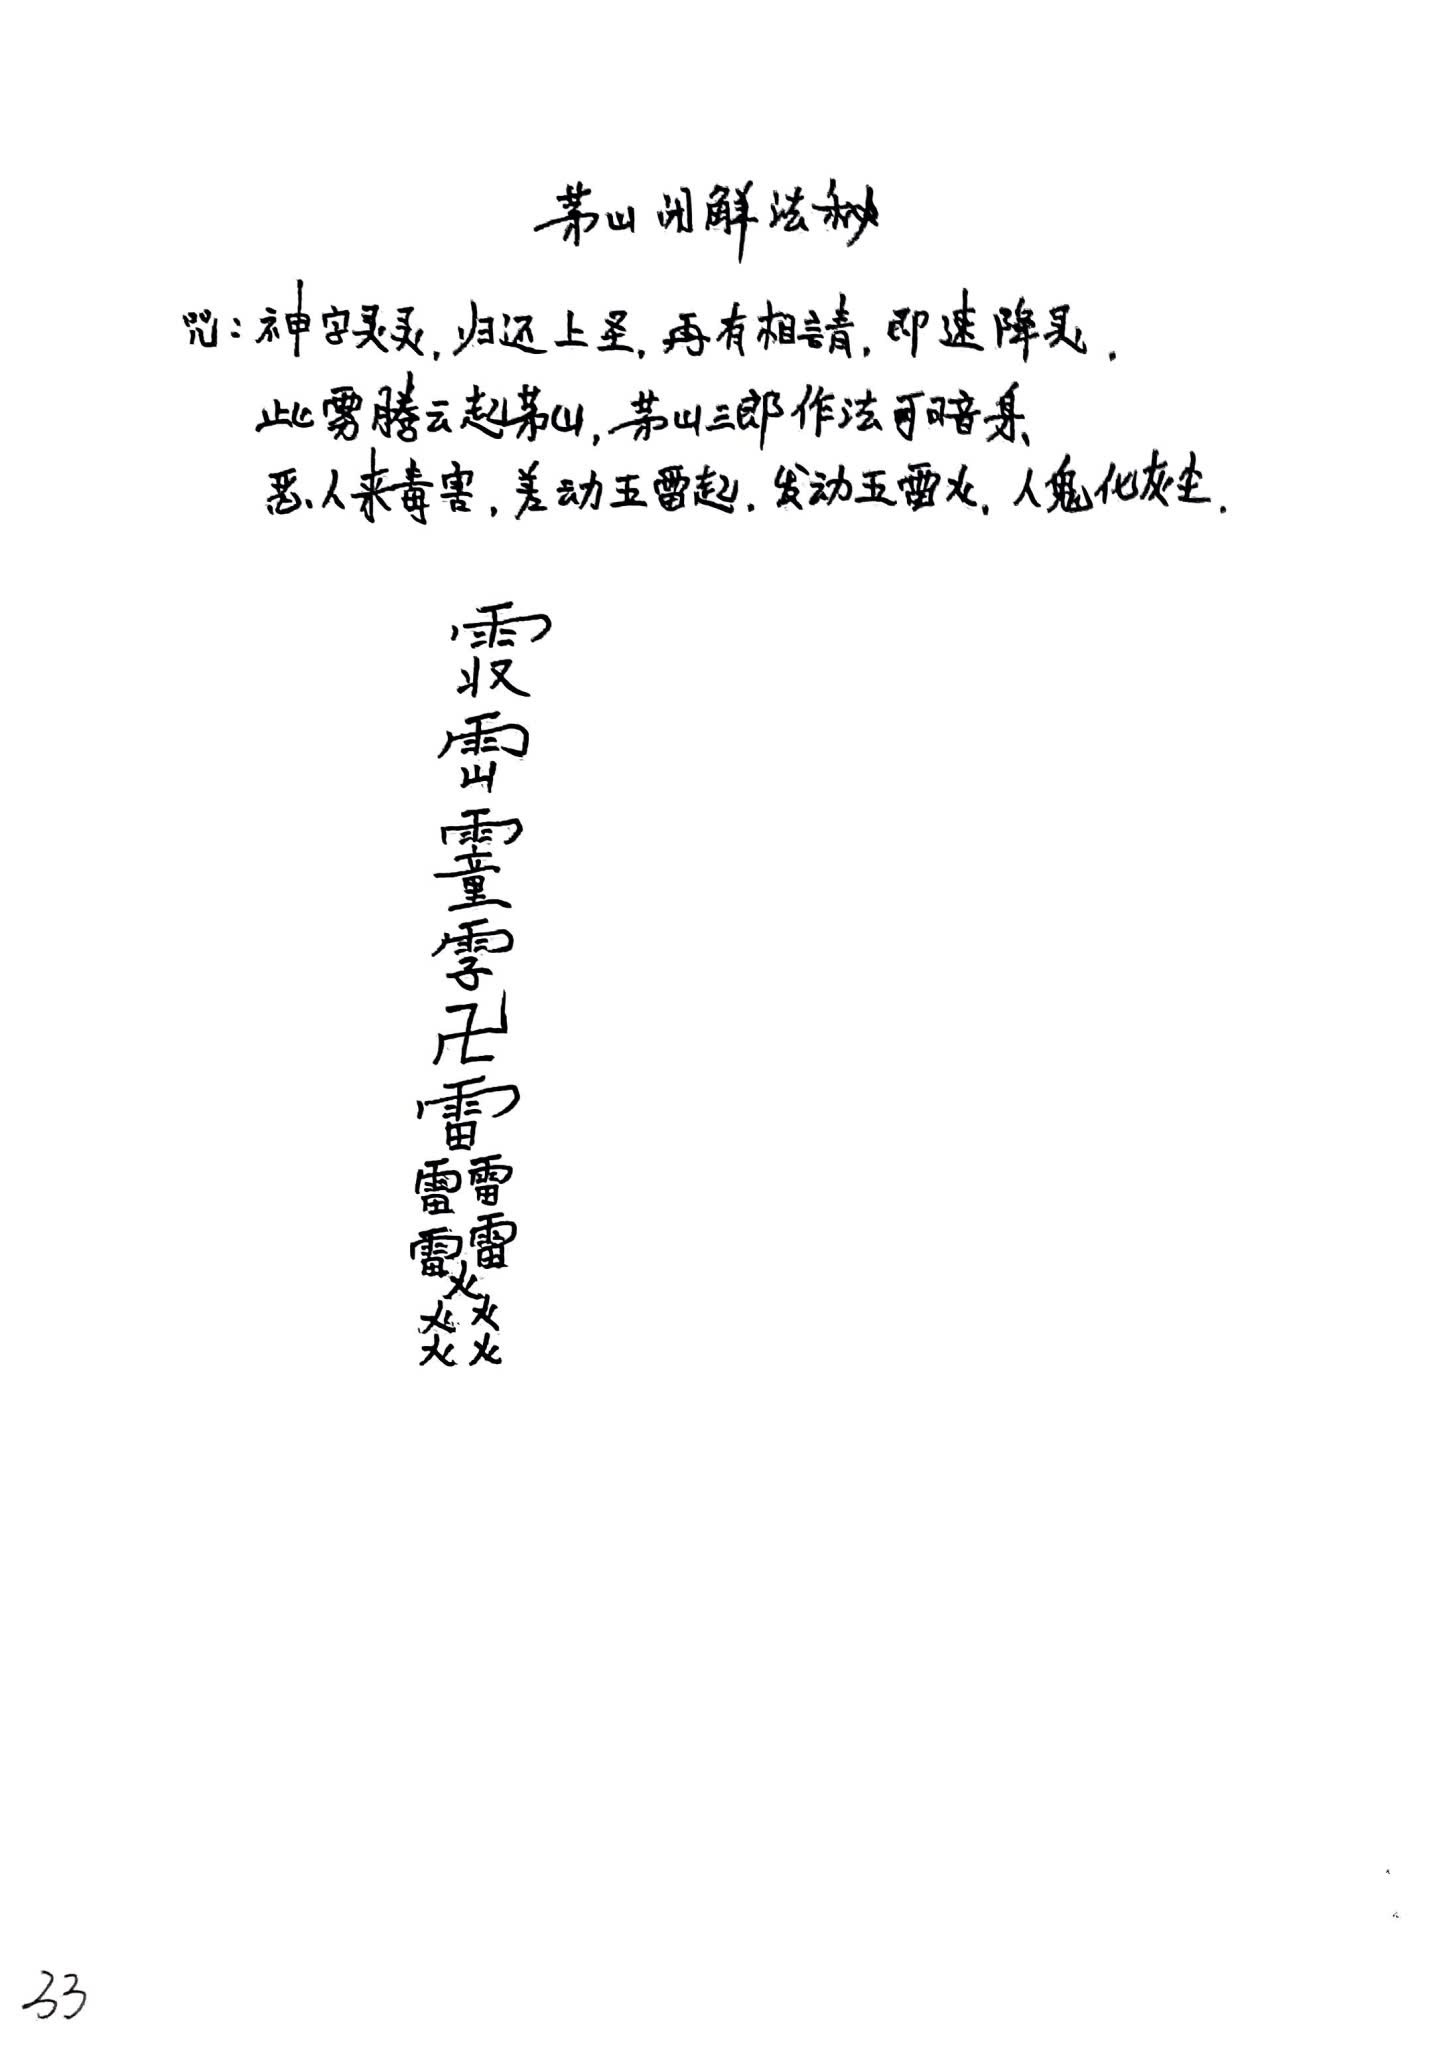 茅山闭解法秘
咒：神字灵灵，归还上圣，再有相請，即速降灵．
此雾腾云起茅山，茅山三郎作法可暗身、
恶人来毒害，差动五雷起．发动五雷火，人鬼化灰尘．
卍
雷
雷雷
雷雷
火
火火
火火
33